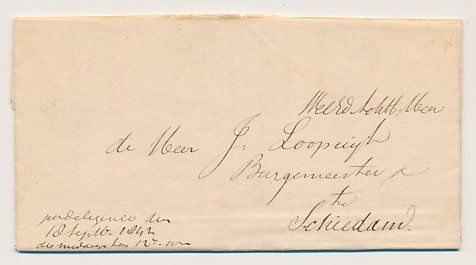 WelEd Achtb. Heer
de Heer J. Loopuyt
Burgemeester
te
Schiedam.
per diligence den
18 Septb. 1842
des middags ten 12 ure